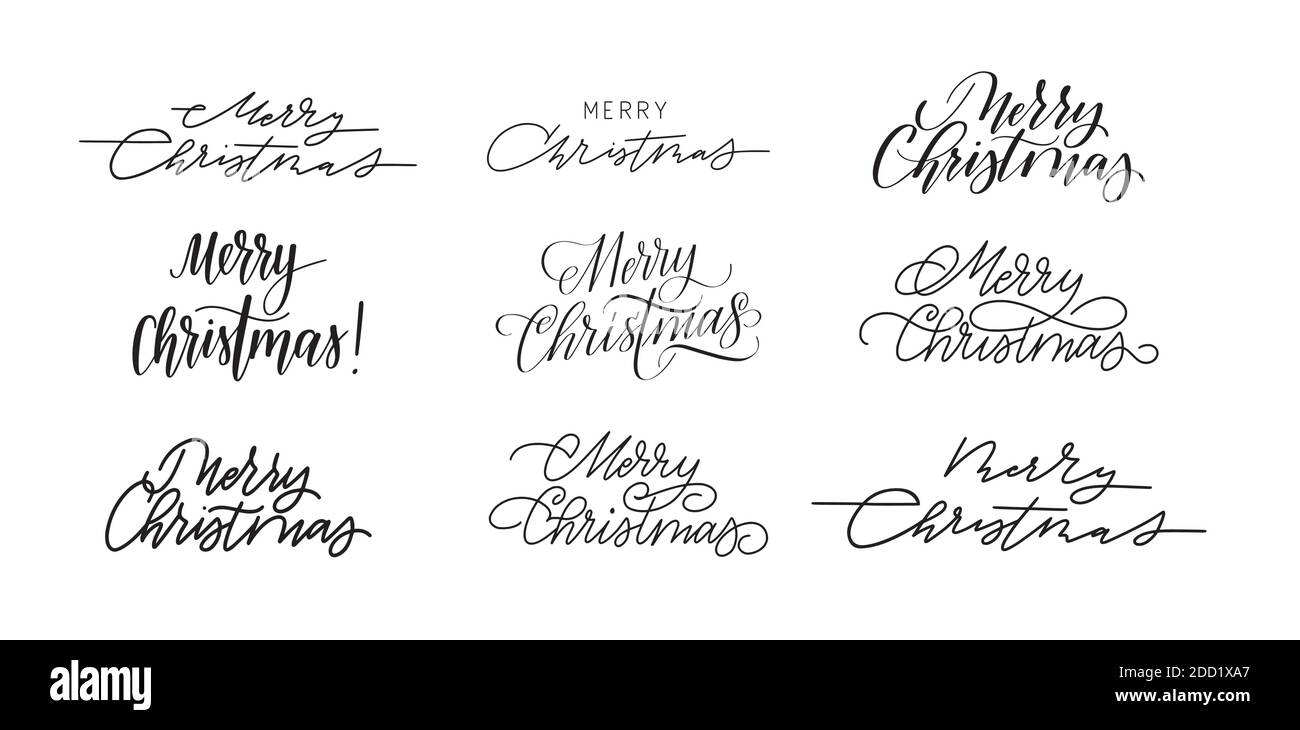 Merry
Christmas
MERRY
Christmas
Merry
Christmas
Merry
Christmas!
Merry
Christmas
Merry
Christmas
Merry
Christmas
Merry
Christmas
Merry
Christmas
alamy
Image ID: 2DD1XA7
www.alamy.com